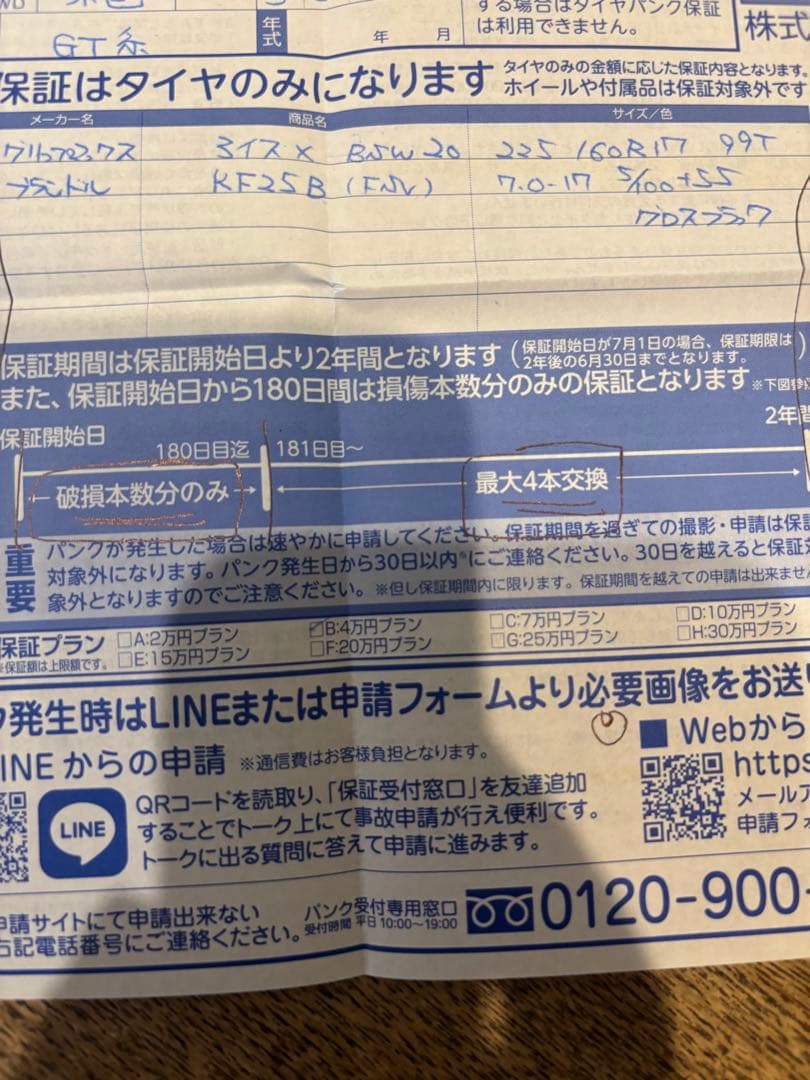 する場合はタイヤパンク保証
は利用できません。
株式
GT系
年式
年 月
保証はタイヤのみになります
タイヤのみの金額に応じた保証内容となります。
ホイールや付属品は保証対象外です
メーカー名 商品名 サイズ/色
BSW 20 225 160R17 99T
KF25B (FSV) 7.0-17 5/100+55
グロスブラック
保証期間は保証開始日より2年間となります
(保証開始日が7月1日の場合、保証期限は
2年後の6月30日までとなります。)
また、保証開始日から180日間は損傷本数分のみの保証となります ※下図参
保証開始日
180日目迄 181日目~
2年間
破損本数分のみ
最大4本交換
重要
パンクが発生した場合は速やかに申請してください。保証期間を過ぎての撮影・申請は保証
対象外になります。パンク発生日から30日以内※にご連絡ください。30日を越えると保証対
象外となりますのでご注意ください。 ※但し保証期間内に限ります。保証期間を越えての申請は出来ませ
保証プラン
※保証額は上限額です。
□A:2万円プラン ☑B:4万円プラン □C:7万円プラン □D:10万円プラン
□E:15万円プラン □F:20万円プラン □G:25万円プラン □H:30万円プラン
ク発生時はLINEまたは申請フォームより必要画像をお送り
INEからの申請 ※通信費はお客様負担となります。
LINE
QRコードを読取り、「保証受付窓口」を友達追加
することでトーク上にて事故申請が行え便利です。
トークに出る質問に答えて申請に進みます。
■ Webから
https
メールア
申請フォ
申請サイトにて申請出来ない
右記電話番号にご連絡ください。
パンク受付専用窓口
受付時間 平日 10:00~19:00
0120-900-